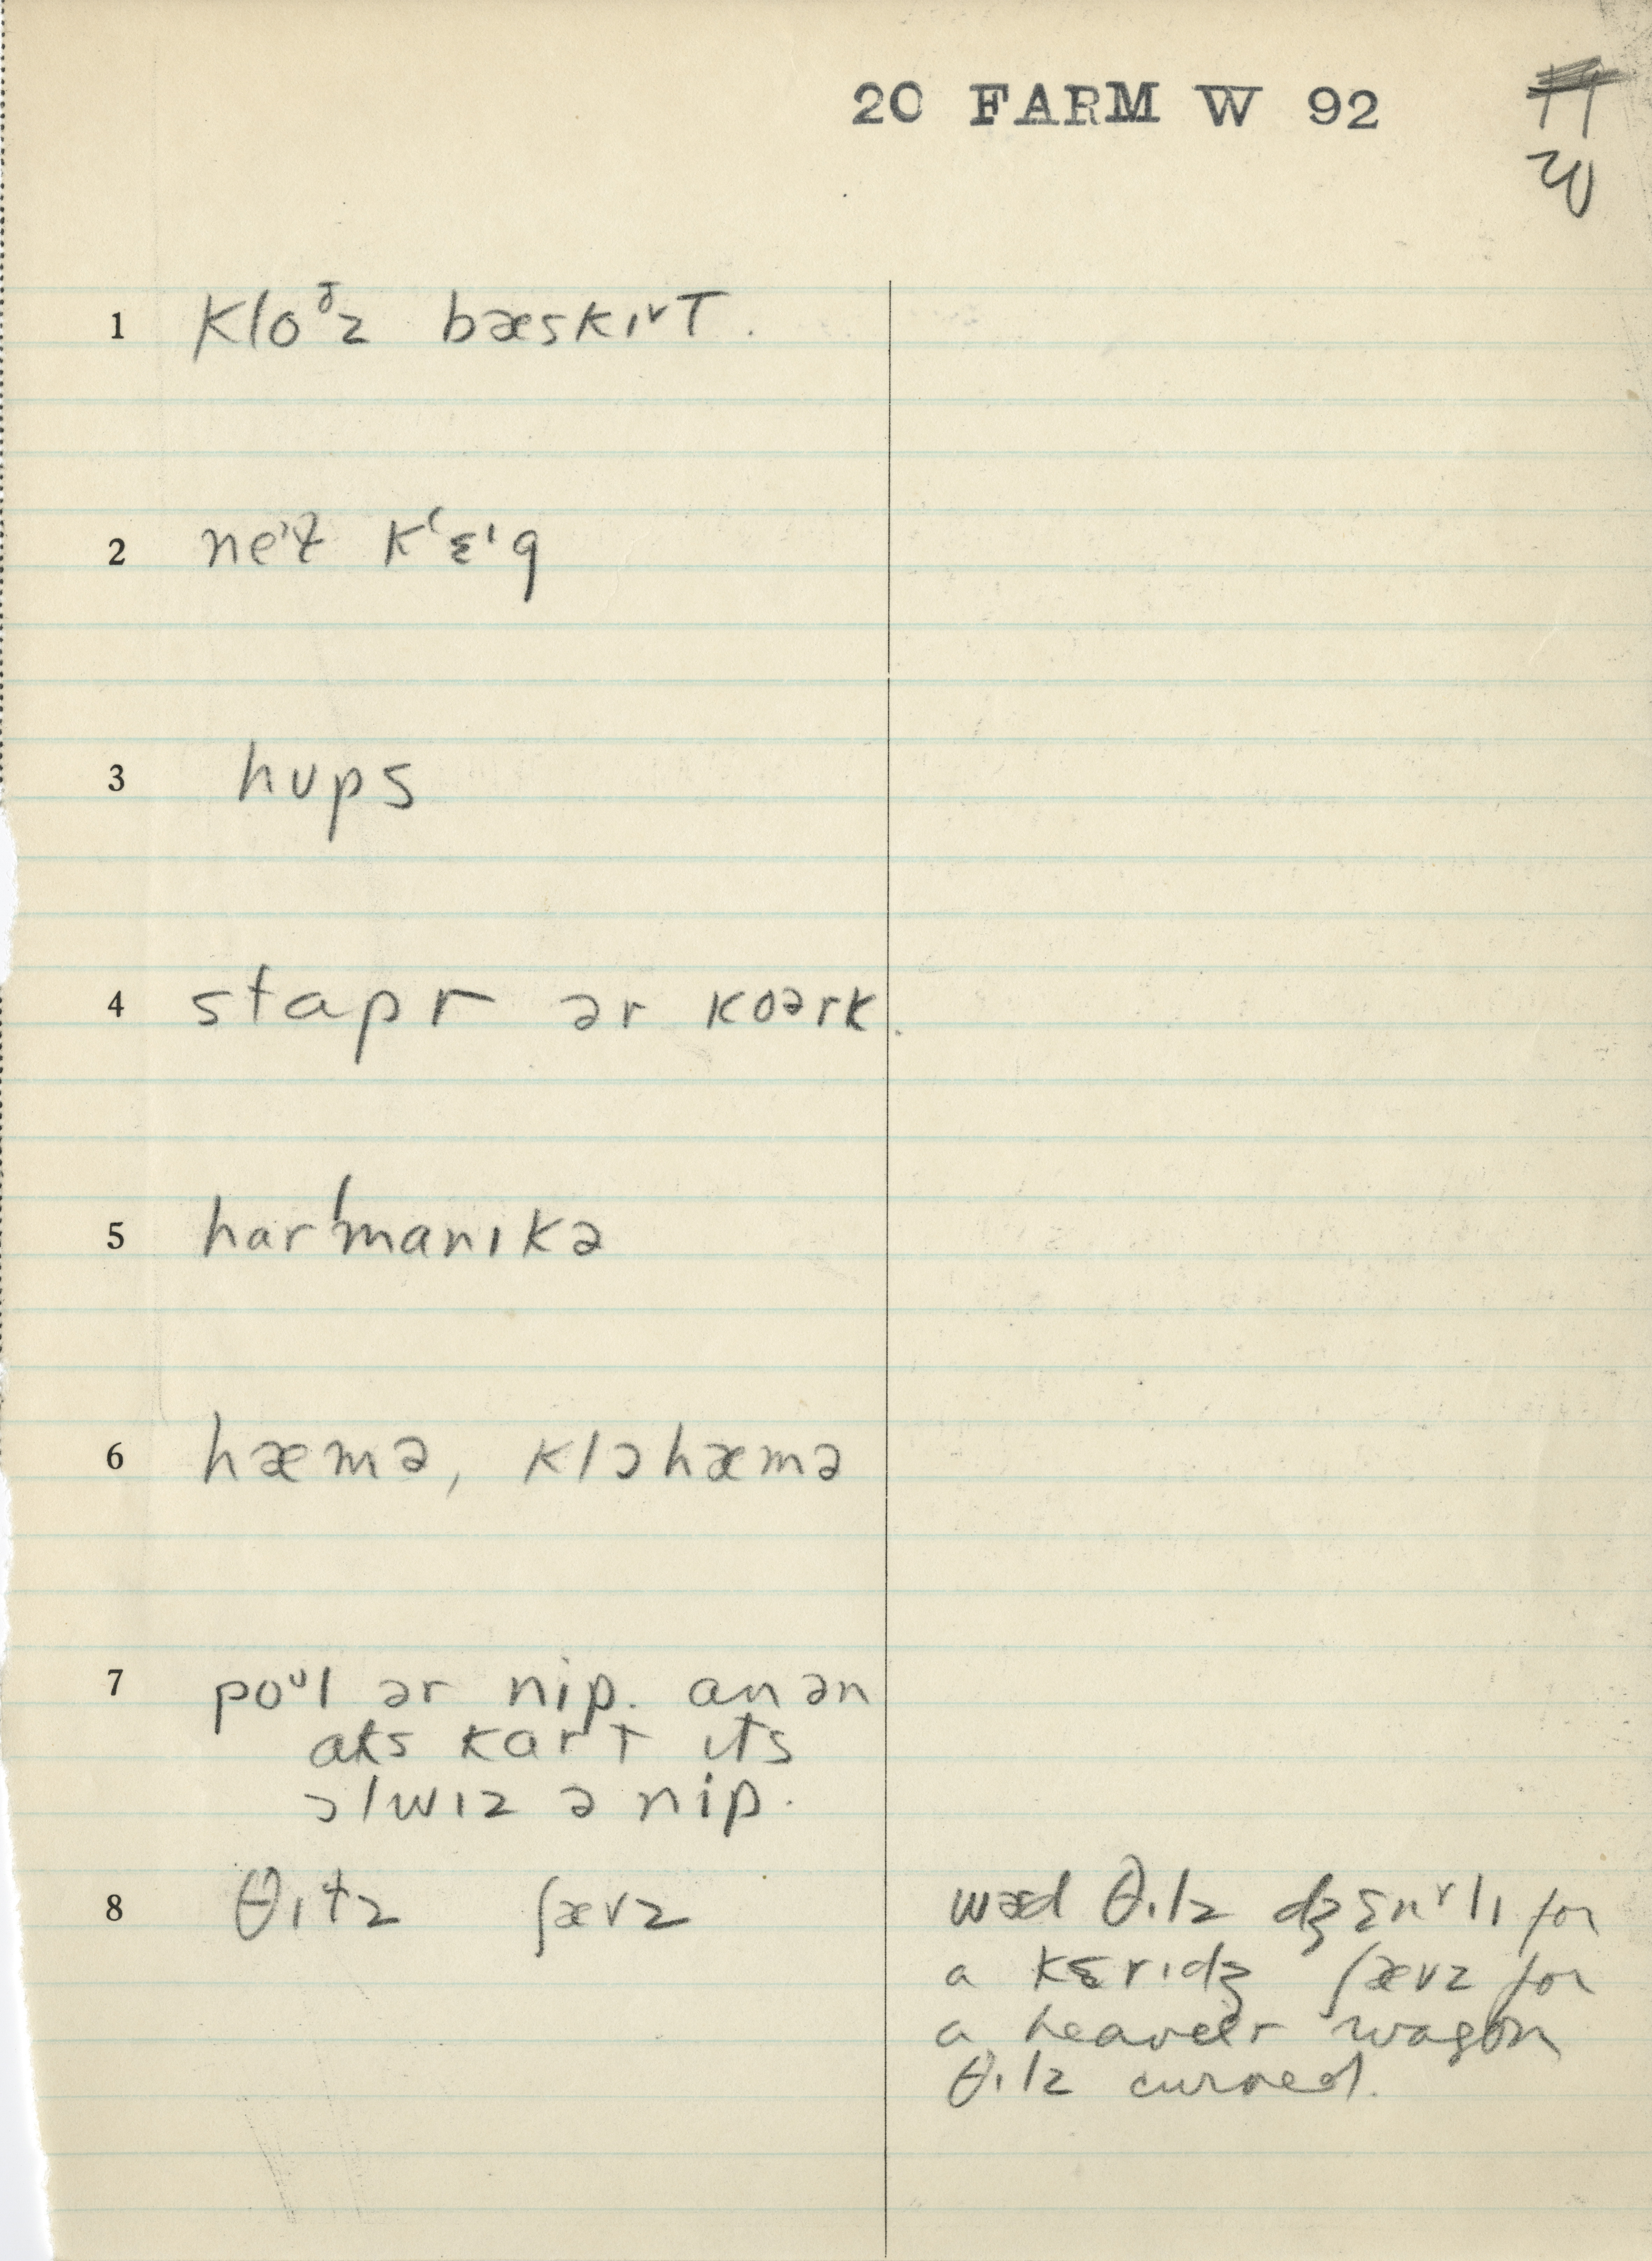 20 FARM W 92
20
1 kloᶷz bæskɪ˅t.
2 k‘ɛᶦg
3 hups
4 stapr ər kɔərk.
5 har'manɪkə
6 hæmə, klɔhæmə
7 poᶷl ər nip. an ən
aks kart ɪts
ɔlwɪz ə nip.
8 θɪlz ʃævz
wæd θɪlz dʒɛn˅lɪ for
a kɛrɪdʒ ʃævz for
a heavier wagon
θɪlz curved.